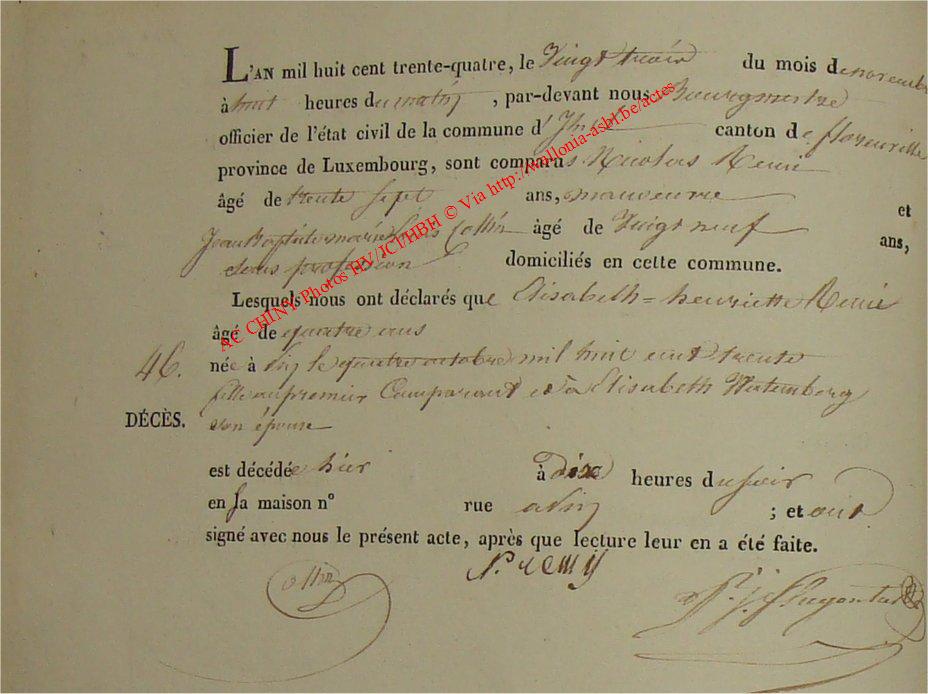 L'AN mil huit cent trente-quatre, le Vingt trois du mois de novembre
à huit heures du matin, par-devant nous Bourgmestre
officier de l'état civil de la commune d' canton de florenville
province de Luxembourg, sont comparus Nicolas Remi
âgé de trente sept ans, manoeuvre et
Jean Baptiste Collin âgé de Vingt neuf ans,
sans profession domiciliés en cette commune.
Lesquels nous ont déclarés que Elisabeth = henriette Remi
âgé de quatre ans
née à le quatre octobre mil huit cent trente
46.
fille au premier Comparant et à Elisabeth
DÉCÈS.
son épouse
est décédée hier à dix heures du soir
en sa maison n° rue ; et ont
signé avec nous le présent acte, après que lecture leur en a été faite.
N. remy
Collin
AC CHINY Photos HV/JCT/HBH © Via http://wallonia-asbl.be/actes